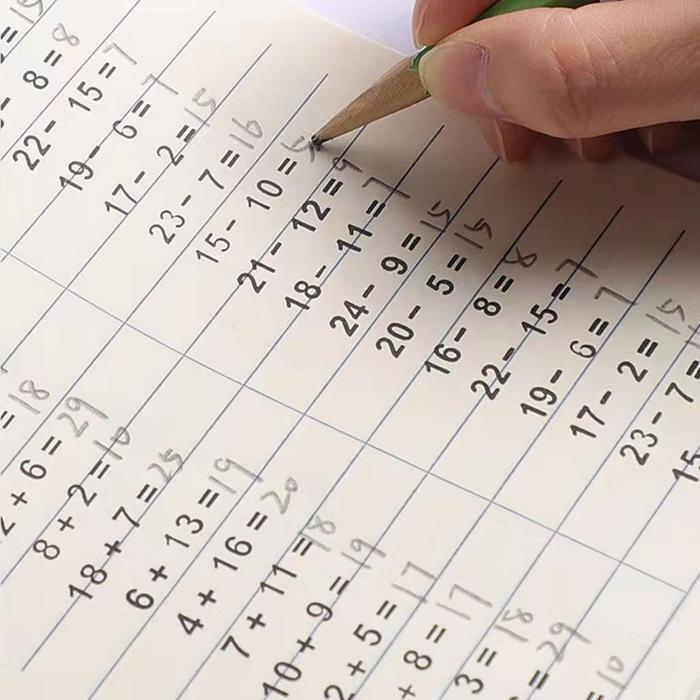 =15
- 8=8
22- 15=7
19- 6=7
17- 2=15
23- 7=16
15- 10=
21- 12=9
18- 11=7
24- 9=15
20- 5=15
16- 8=8
22- 15=7
19- 6=7
17- 2=15
23- 7=
15
=18
2+6=29
8+2=10
18+7=25
6+13=19
4+16=20
7+11=18
10+9=19
2+5=17
+8=17
3=18
=29
=10